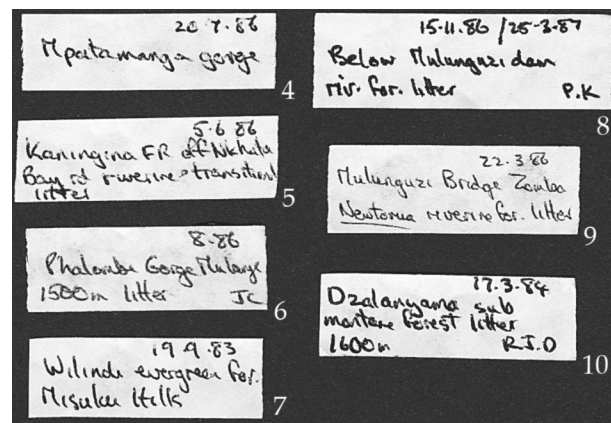 20.7.86
Mpatamanga gorge
4
5.6.86
Kaningina FR off Nkhata
Bay rd riverine + transitional
litter
5
8.86
Phalombe Gorge Mulanje
1500m litter JC
6
19.9.83
Wilindi evergreen for.
Misuku Hills
7
15.11.86 / 25.3.87
Below Mulunguzi dam
riv. for. litter P.K
8
22.3.86
Mulunguzi Bridge Zomba
Newtonia riverine for. litter
9
17.3.84
Dzalanyama sub
montane forest litter
1600m R.J.D
10